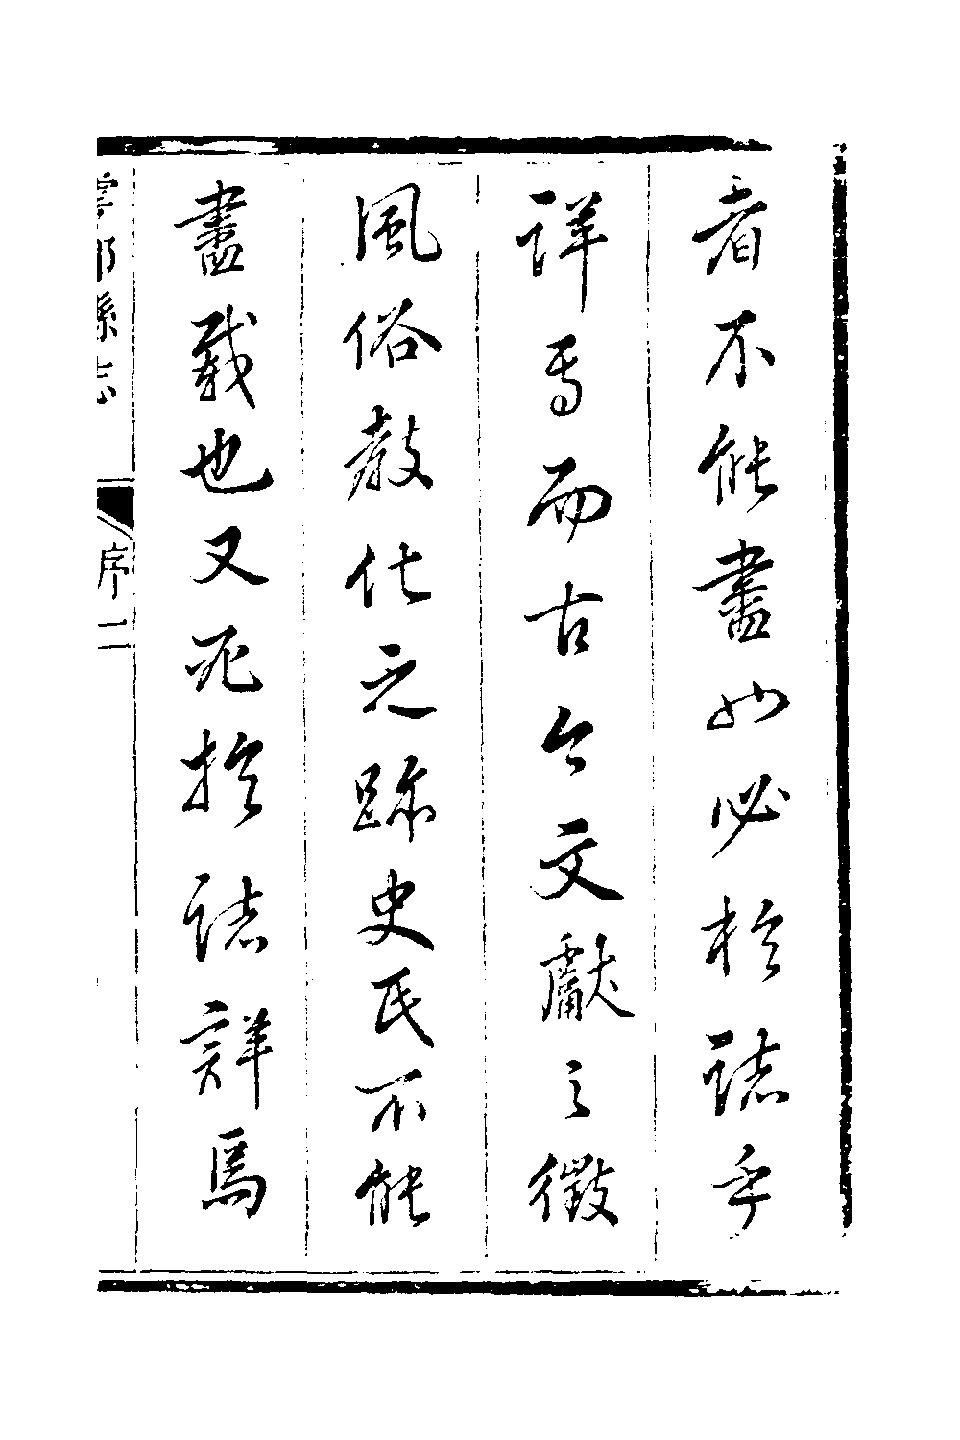 者不能盡必於誌乎
詳焉而古今文獻之徵
風俗教化之跡史氏不能
盡載也又於誌詳焉
縣志
序二